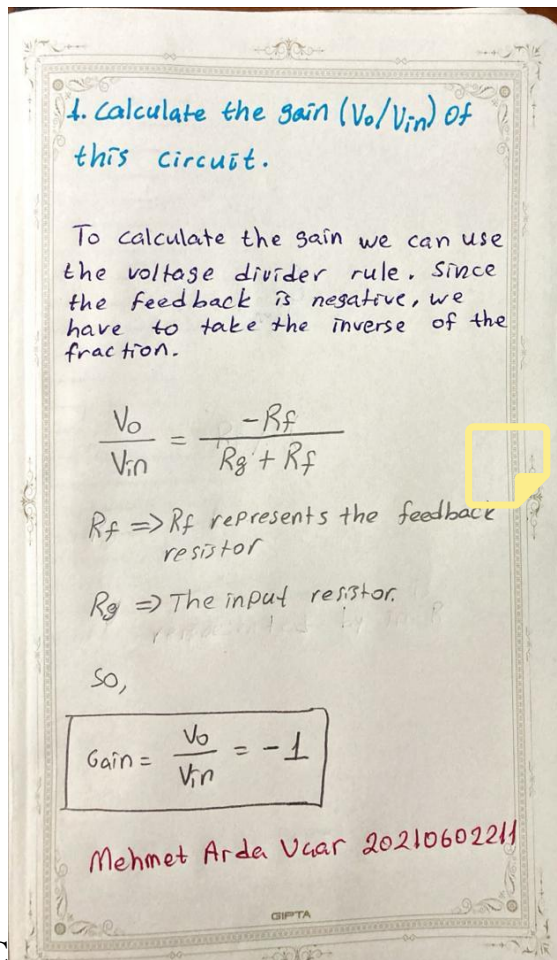 1. Calculate the gain (Vo/Vin) of
this circuit.
To calculate the gain we can use
the voltage divider rule. Since
the feedback is negative, we
have to take the inverse of the
fraction.
Vo/Vin = -Rf/Rg + Rf
Rf => Rf represents the feedback
resistor
Rg => The input resistor.
so,
Gain = Vo/Vin = -1
Mehmet Arda Uçar 20210602211
GIPTA